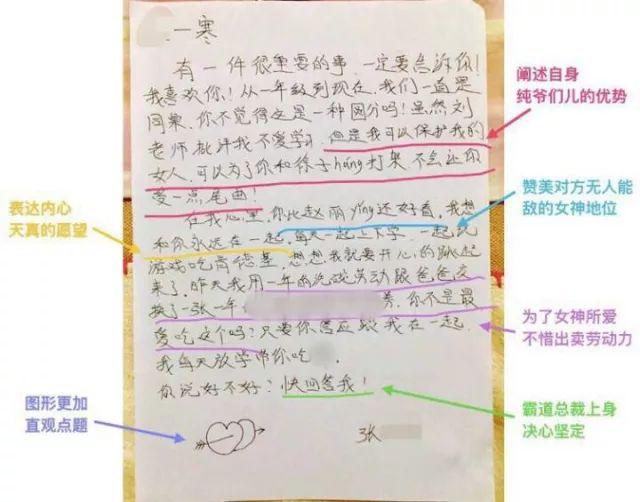 一寒
有一件很重要的事,一定要告诉你!
我喜欢你!从一年级到现在,我们一直是
同桌,你不觉得这是一种圆分吗!虽然刘
老师批评我不爱学习,但是我可以保护我的
女人,可以为了你和徐子háng打架,不会让你
受一点尾曲!
在我心里,你比赵丽yǐng还好看,我想
和你永远在一起,每天一起上下学,一起玩
游戏吃肯德基,想想我就要开心的跳起
来了,昨天我用一年的洗碗劳动跟爸爸交
换了一张一年
养,你不是最
爱吃这个吗?只要你答应跟我在一起,
我每天放学带你吃
你说好不好?快回答我!
张
阐述自身
纯爷们儿的优势
赞美对方无人能
敌的女神地位
表达内心
天真的愿望
为了女神所爱
不惜出卖劳动力
图形更加
直观点题
霸道总裁上身
决心坚定